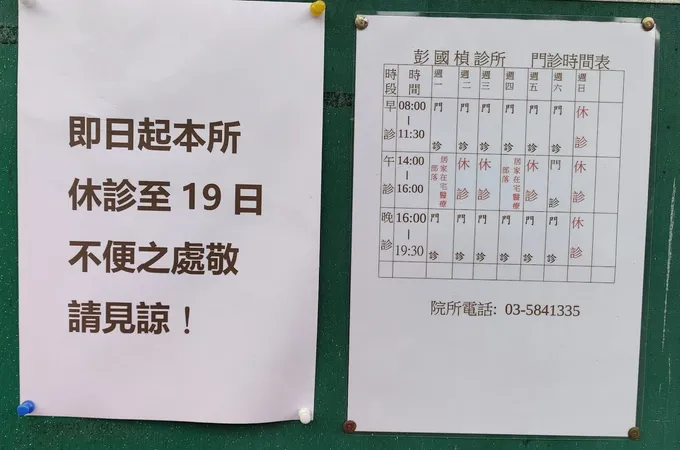 即日起本所
休診至 19 日
不便之處敬
請見諒！
彭國楨診所 門診時間表
時段 時間 週一 週二 週三 週四 週五 週六 週日
早診 08:00–11:30 門診 門診 門診 門診 門診 門診 休診
午診 14:00–16:00 部落居家在宅醫療 休診 休診 部落居家在宅醫療 休診 門診 休診
晚診 16:00–19:30 門診 門診 門診 門診 門診 門診 休診
院所電話: 03-5841335